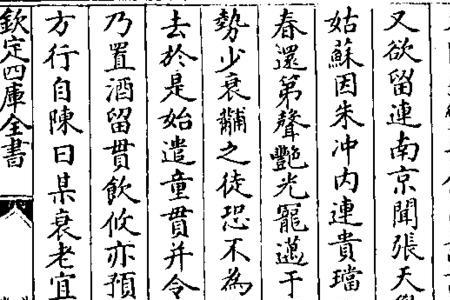 又欲留連南京聞張天覺
姑蘇因朱冲内連貴璫
春還第聲豔光寵邁于
勢少衰黼之徒恐不為
去於是始遣童貫并令
乃置酒留貫飲攸亦預
方行自陳曰某衰老宜
欽定四庫全書